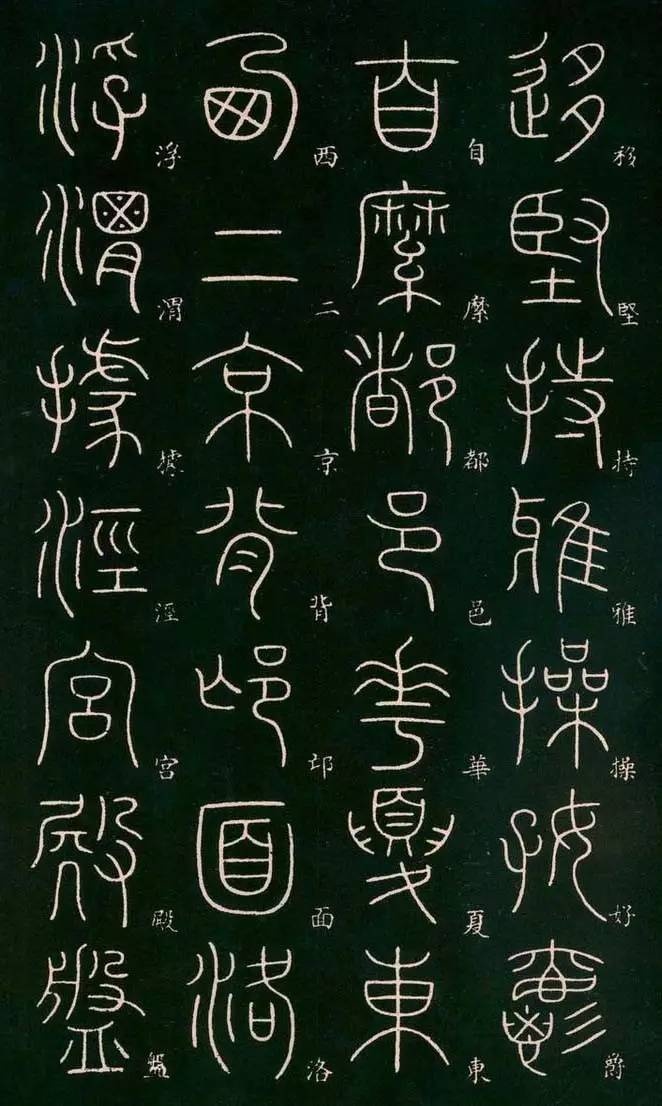 移堅持雅操好爵
自縻都邑華夏東
西二京背邙面洛
浮渭據涇宮殿盤